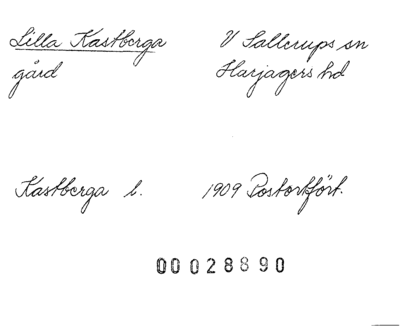 Lilla Kastberga V Sallerups sn
gård Harjagers hd
Kastberga l. 1909 Postortfört.
00028890